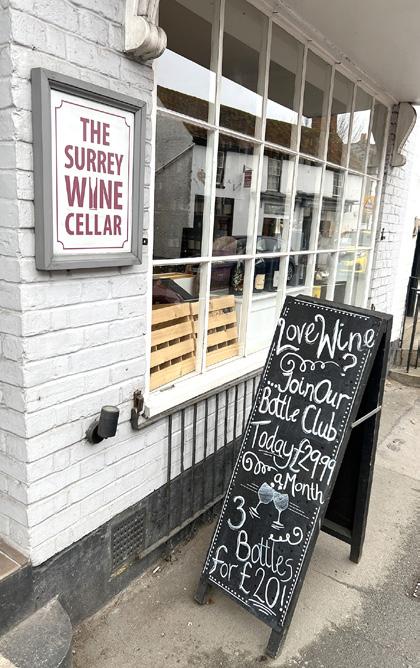 THE
SURREY
WINE
CELLAR
Love Wine
?
...Join Our
Bottle Club
Today £29.99
a Month
3
Bottles
for £20!